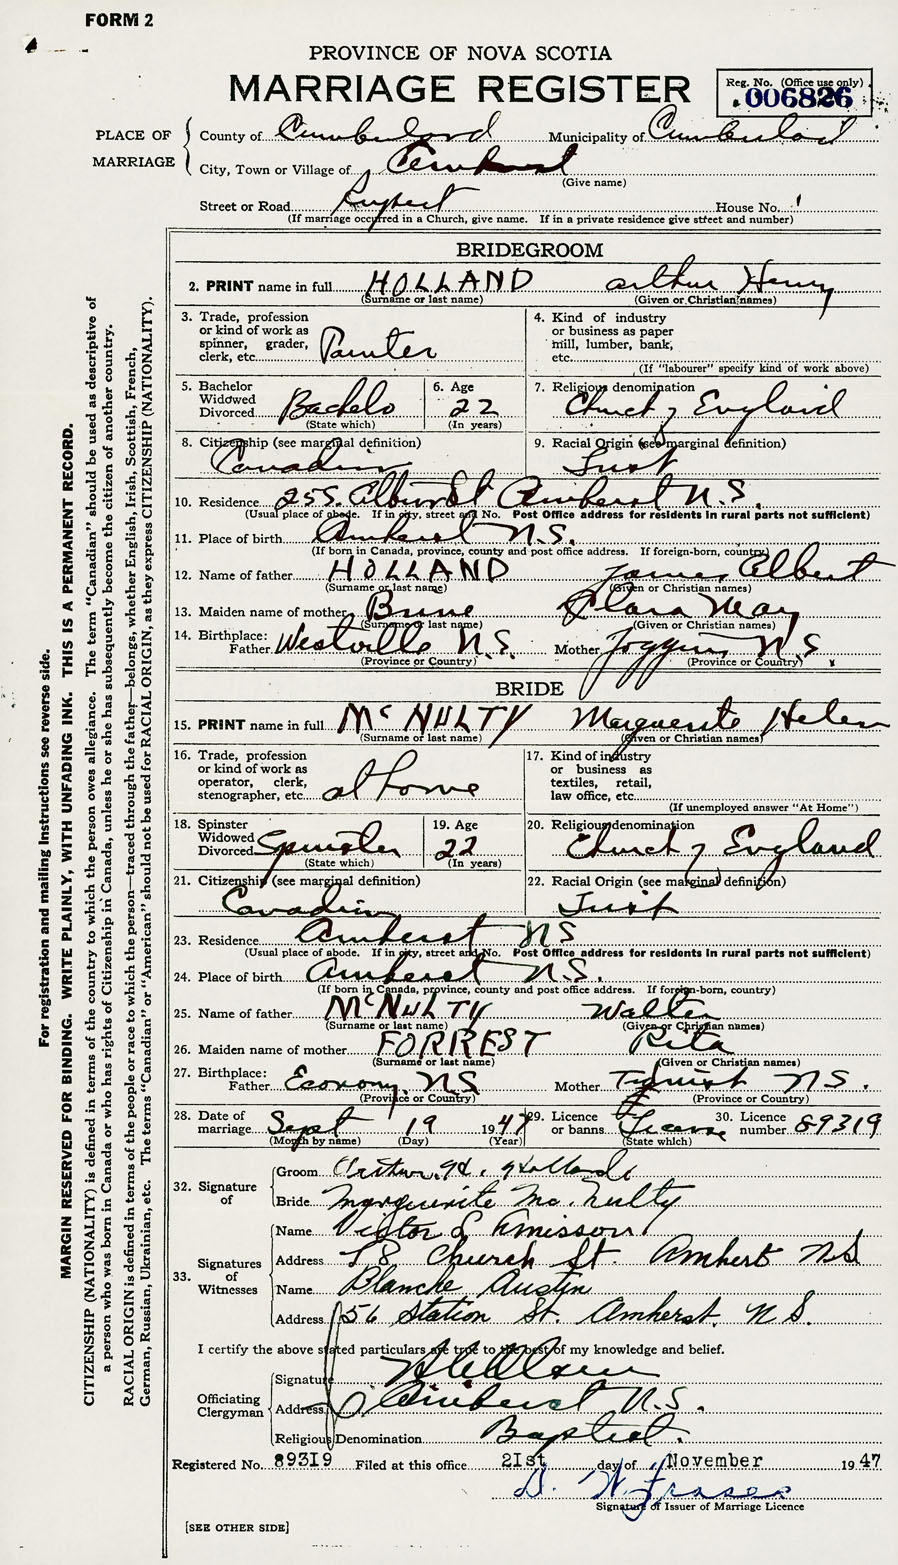 FORM 2
PROVINCE OF NOVA SCOTIA
MARRIAGE REGISTER
Reg. No. (Office use only)
006826
PLACE OF MARRIAGE
County of Cumberland Municipality of Cumberland
City, Town or Village of Amherst
(Give name)
Street or Road Rupert House No.
(If marriage occurred in a Church, give name. If in a private residence give street and number)
BRIDEGROOM
2. PRINT name in full HOLLAND Arthur Henry
(Surname or last name) (Given or Christian names)
3. Trade, profession or kind of work as spinner, grader, clerk, etc. Painter
4. Kind of industry or business as paper mill, lumber, bank, etc.
(If "labourer" specify kind of work above)
5. Bachelor Widowed Divorced Bachelo
(State which)
6. Age 22
(In years)
7. Religious denomination Church of England
8. Citizenship (see marginal definition) Canadian
9. Racial Origin (see marginal definition)
10. Residence 255 Albion St Amherst N.S.
(Usual place of abode. If in city, street and No. Post Office address for residents in rural parts not sufficient)
11. Place of birth Amherst N.S.
(If born in Canada, province, county and post office address. If foreign-born, country)
12. Name of father HOLLAND James Albert
(Surname or last name) (Given or Christian names)
13. Maiden name of mother Clara May
(Surname or last name) (Given or Christian names)
14. Birthplace: Father Westville N.S. Mother Joggins N S
(Province or Country) (Province or Country)
BRIDE
15. PRINT name in full McNULTY Marguerite Helen
(Surname or last name) (Given or Christian names)
16. Trade, profession or kind of work as operator, clerk, stenographer, etc. at home
17. Kind of industry or business as textiles, retail, law office, etc.
(If unemployed answer "At Home")
18. Spinster Widowed Divorced Spinster
(State which)
19. Age 22
(In years)
20. Religious denomination Church of England
21. Citizenship (see marginal definition) Canadian
22. Racial Origin (see marginal definition)
23. Residence Amherst NS
(Usual place of abode. If in city, street and No. Post Office address for residents in rural parts not sufficient)
24. Place of birth Amherst N.S.
(If born in Canada, province, county and post office address. If foreign-born, country)
25. Name of father McNULTY Walter
(Surname or last name) (Given or Christian names)
26. Maiden name of mother FORREST Rita
(Surname or last name) (Given or Christian names)
27. Birthplace: Father Economy NS Mother NS.
(Province or Country) (Province or Country)
28. Date of marriage Sept 19 1947
(Month by name) (Day) (Year)
29. Licence or banns License
(State which)
30. Licence number 89319
32. Signature of
Groom Arthur H. Holland
Bride Marguerite Mc.Nulty
33. Signatures of Witnesses
Name Victor
Address 78 Church St. Amherst NS
Name Blanche Austin
Address 56 Station St. Amherst. N S.
I certify the above stated particulars are true to the best of my knowledge and belief.
Officiating Clergyman
Signature
Address Amherst N.S.
Religious Denomination Baptist.
Registered No. 89319 Filed at this office 21st day of November 1947
D. W. Fraser
Signature of Issuer of Marriage Licence
[SEE OTHER SIDE]
For registration and mailing instructions see reverse side.
MARGIN RESERVED FOR BINDING. WRITE PLAINLY, WITH UNFADING INK. THIS IS A PERMANENT RECORD.
CITIZENSHIP (NATIONALITY) is defined in terms of the country to which the person owes allegiance. The term "Canadian" should be used as descriptive of
a person who was born in Canada or who has rights of Citizenship in Canada, unless he or she has subsequently become the citizen of another country.
RACIAL ORIGIN is defined in terms of the people or race to which the person—traced through the father—belongs, whether English, Irish, Scottish, French,
German, Russian, Ukrainian, etc. The terms "Canadian" or "American" should not be used for RACIAL ORIGIN, as they express CITIZENSHIP (NATIONALITY).